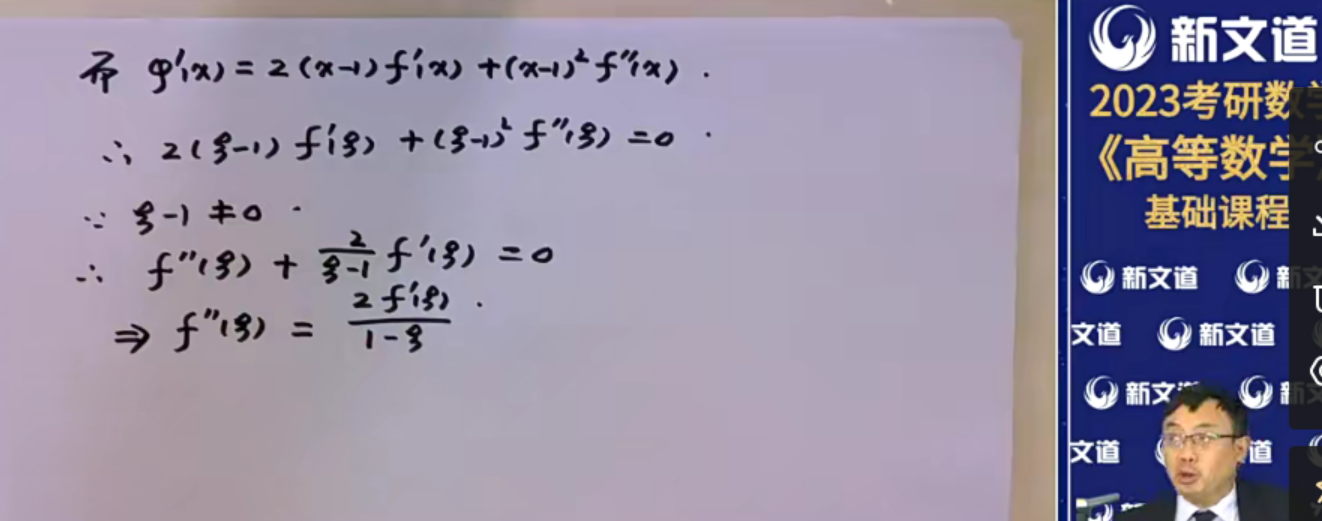 而 φ'(x) = 2(x-1)f'(x) + (x-1)² f''(x) .
∴ 2(ξ-1) f'(ξ) + (ξ-1)² f''(ξ) = 0 .
∵ ξ-1 ≠ 0 .
∴ f''(ξ) + \frac{2}{ξ-1} f'(ξ) = 0
⇒ f''(ξ) = \frac{2f'(ξ)}{1-ξ} .
新文道
2023考研数学
《高等数学
基础课程
新文道 新
文道 新文道
新文 新
文道 道